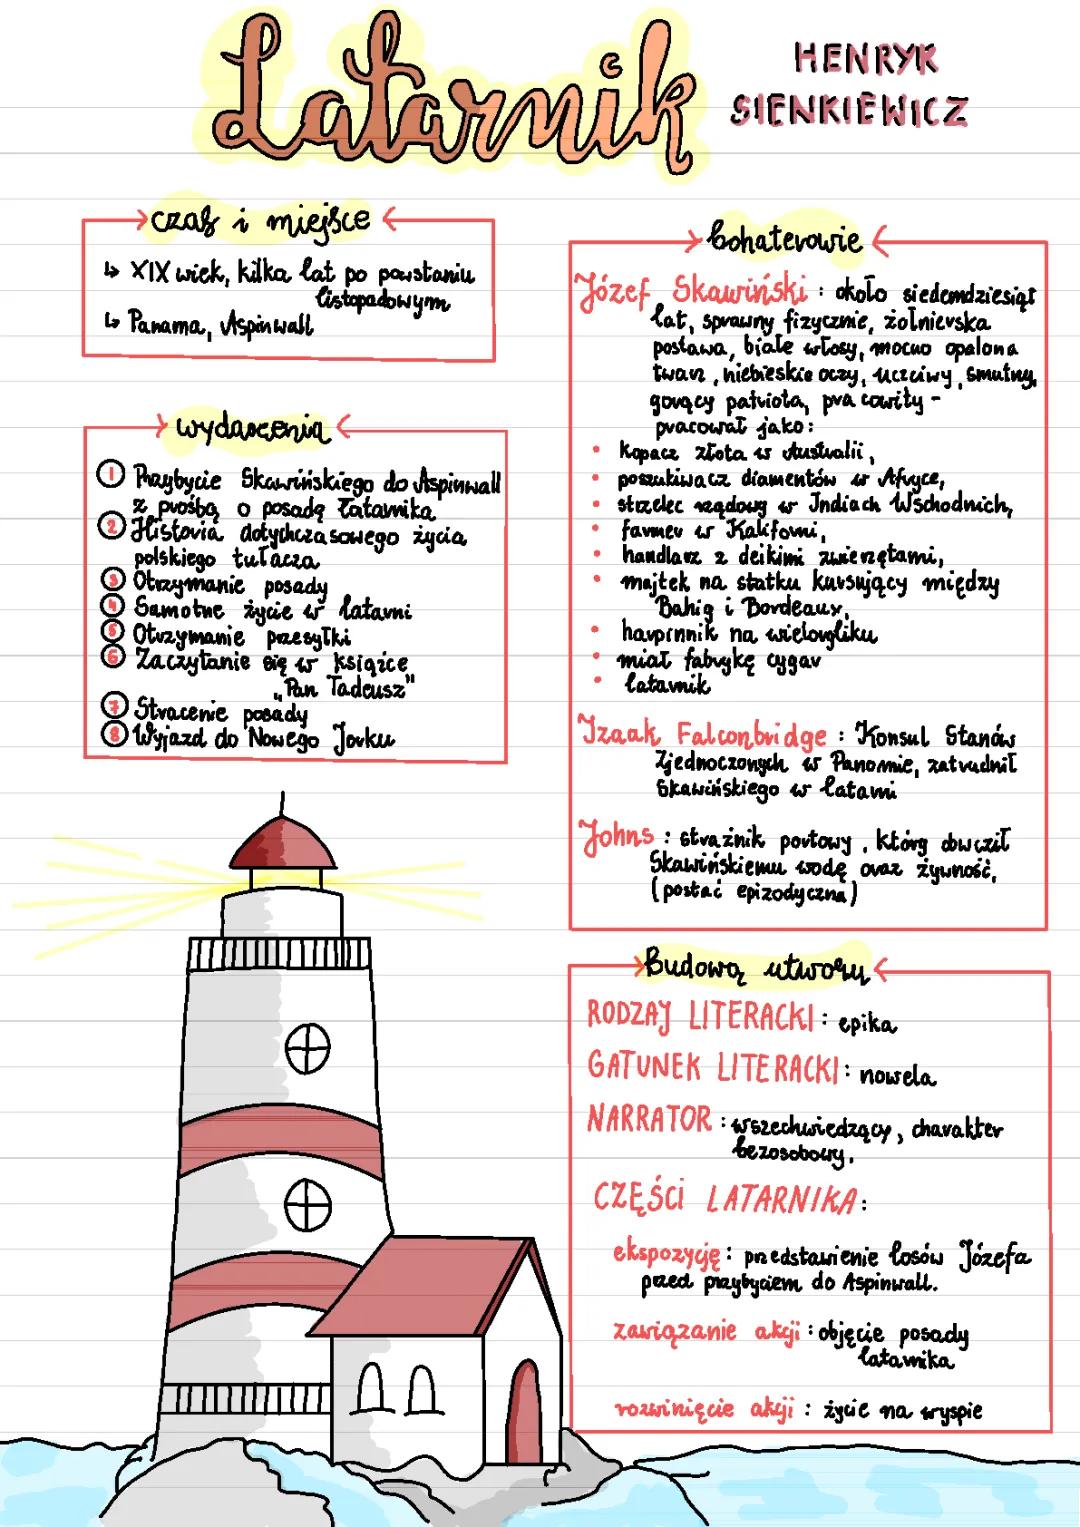 Latarnik
HENRYK
SIENKIEWICZ
czas i miejsce
↳ XIX wiek, kilka lat po powstaniu
listopadowym
↳ Panama, Aspinwall
wydarzenia
1 Przybycie Skawińskiego do Aspinwall
z prośbą o posadę latarnika
2 Historia dotychczasowego życia
polskiego tułacza
3 Otrzymanie posady
4 Samotne życie w latarni
5 Otrzymanie przesyłki
6 Zaczytanie się w książce
„Pan Tadeusz"
7 Stracenie posady
8 Wyjazd do Nowego Jorku
bohaterowie
Józef Skawiński: około siedemdziesiąt
lat, sprawny fizycznie, żołnierska
postawa, białe włosy, mocno opalona
twarz, niebieskie oczy, uczciwy, smutny,
gorący patriota, pracowity -
pracował jako:
• kopacz złota w Australii,
• poszukiwacz diamentów w Afryce,
• strzelec rządowy w Indiach Wschodnich,
• farmer w Kaliforni,
• handlarz z deikimi zwierzętami,
• majtek na statku kursujący między
Bahią i Bordeaux,
• harpinnik na wielorybliku
• miał fabrykę cygar
• latarnik
Izaak Falconbridge: Konsul Stanów
Zjednoczonych w Panomie, zatrudnił
Skawińskiego w latarni
Johns: strażnik portowy, który dowoził
Skawińskiemu wodę oraz żywność,
(postać epizodyczna)
Budowa utworu
RODZAJ LITERACKI: epika
GATUNEK LITERACKI: nowela
NARRATOR: wszechwiedzący, charakter
bezosobowy.
CZĘŚCI LATARNIKA:
ekspozycję: przedstawienie losów Józefa
przed przybyciem do Aspinwall.
zawiązanie akcji: objęcie posady
latarnika
rozwinięcie akcji: życie na wyspie